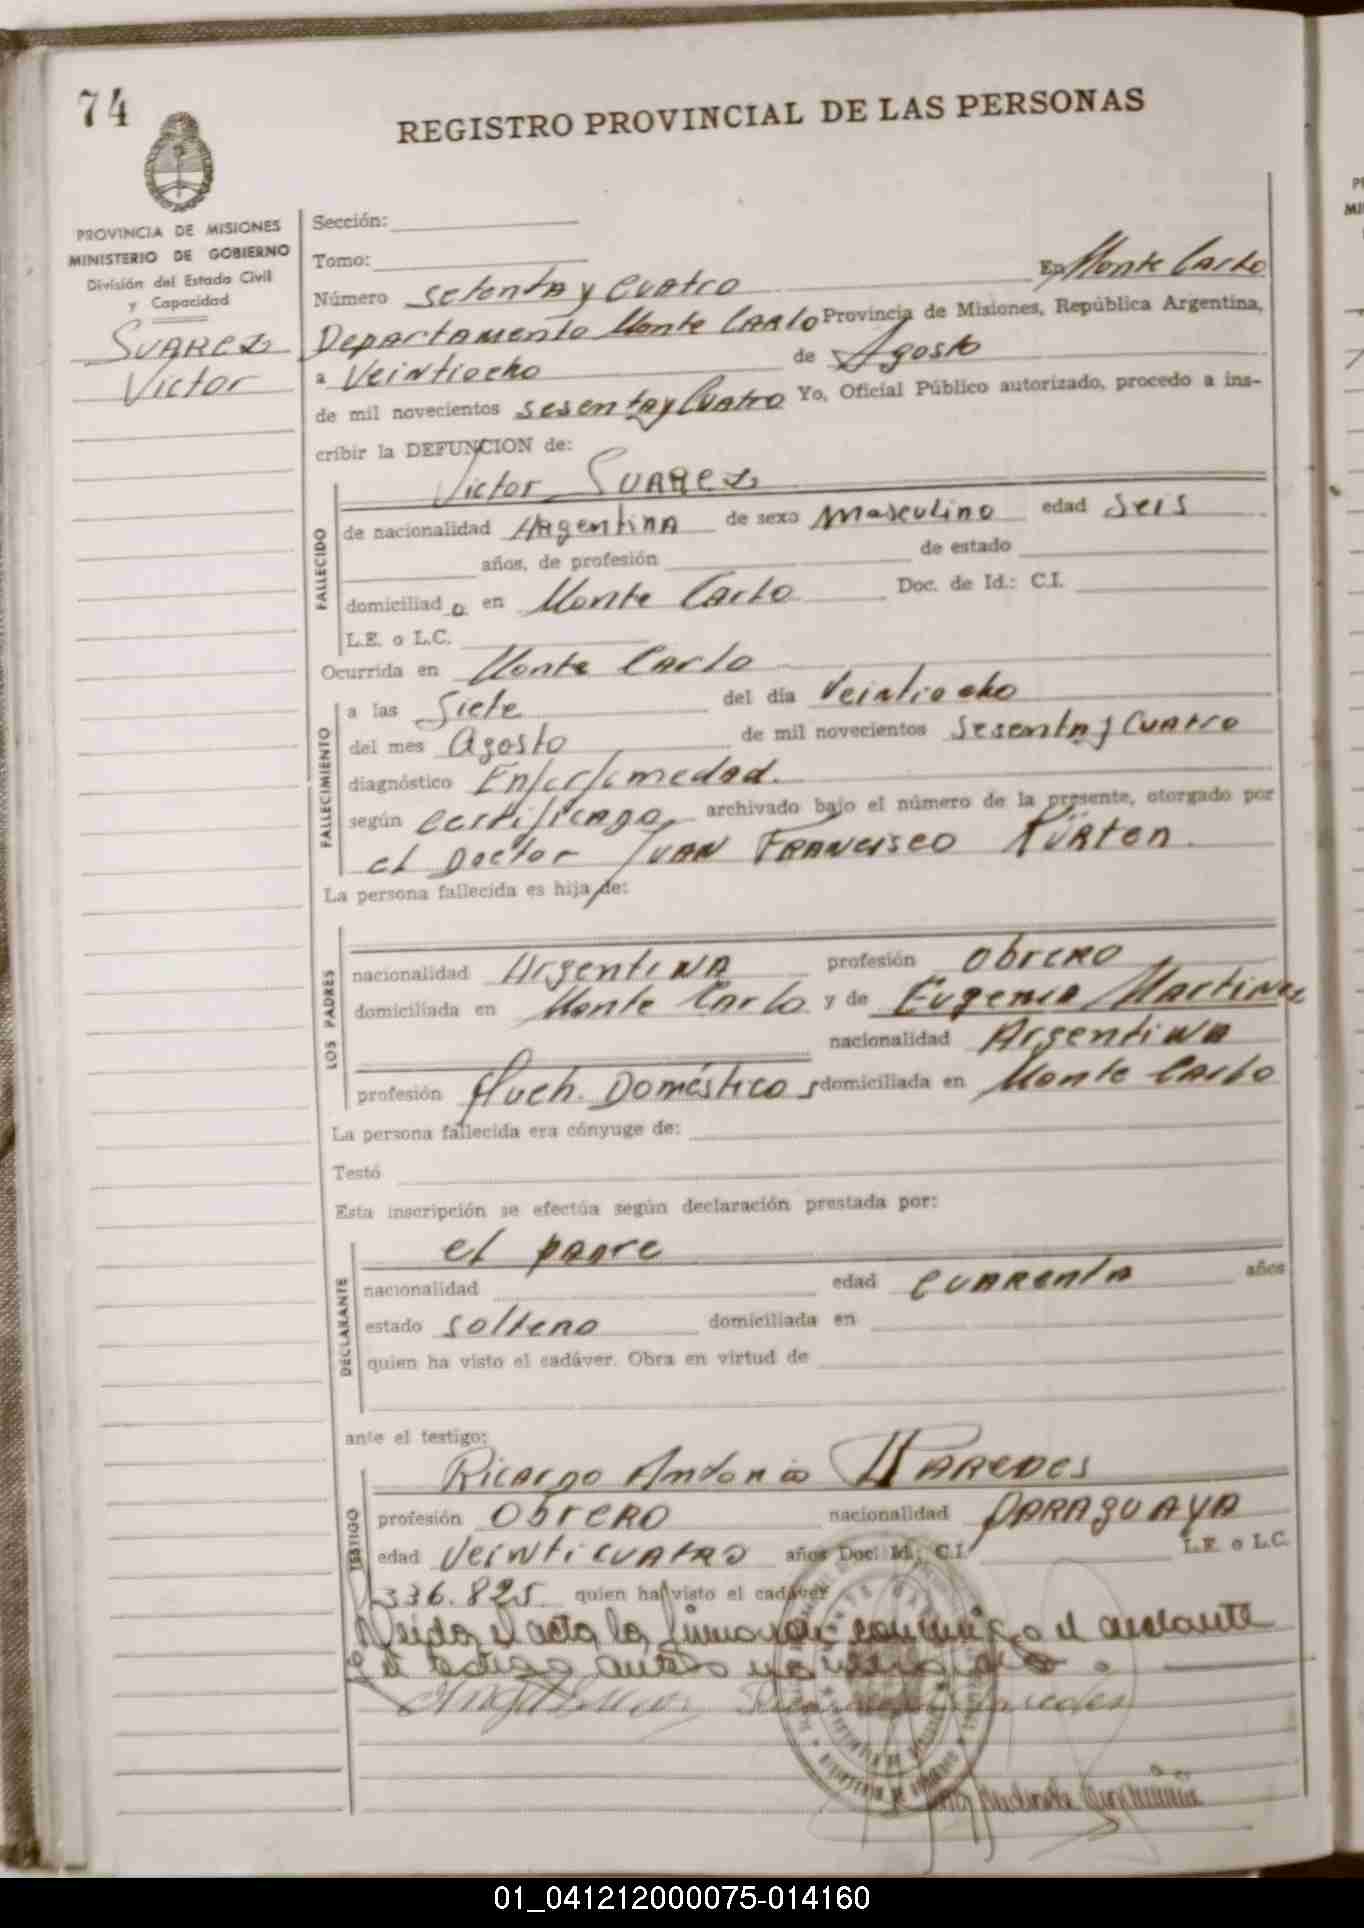 74
REGISTRO PROVINCIAL DE LAS PERSONAS
PROVINCIA DE MISIONES
MINISTERIO DE GOBIERNO
División del Estado Civil
y Capacidad
SUAREZ
Victor
Sección:
Tomo: En Monte Carlo
Número setenta y cuatro
Departamento Monte Carlo Provincia de Misiones, República Argentina,
a Veintiocho de Agosto
de mil novecientos sesenta y Cuatro Yo, Oficial Público autorizado, procedo a ins-
cribir la DEFUNCION de:
Victor SUAREZ
FALLECIDO
de nacionalidad Argentina de sexo masculino edad seis
años, de profesión de estado
domiciliad o en Monte Carlo Doc. de Id.: C.I.
L.E. o L.C.
Ocurrida en Monte Carlo
FALLECIMIENTO
a las Siete del día Veintiocho
del mes Agosto de mil novecientos Sesenta y Cuatro
diagnóstico
según archivado bajo el número de la presente, otorgado por
el Doctor JUAN FRANCISCO KÜRTEN.
La persona fallecida es hija de:
LOS PADRES
nacionalidad Argentina profesión obrero
domiciliada en Monte Carlo y de Eugenia Martinez
nacionalidad Argentina
profesión Queh. Domésticos domiciliada en Monte Carlo
La persona fallecida era cónyuge de:
Testó
Esta inscripción se efectúa según declaración prestada por:
DECLARANTE
el padre
nacionalidad edad cuarenta años
estado soltero domiciliada en
quien ha visto el cadáver. Obra en virtud de
ante el testigo:
Ricardo Antonio PAREDES
TESTIGO
profesión Obrero nacionalidad PARAGUAYA
edad Veinticuatro años Doc. Id.: C.I. L.E. o L.C.
336.825 quien ha visto el cadáver
Leida el acta la firman conmigo el declarante
y el testigo antes
01_041212000075-014160